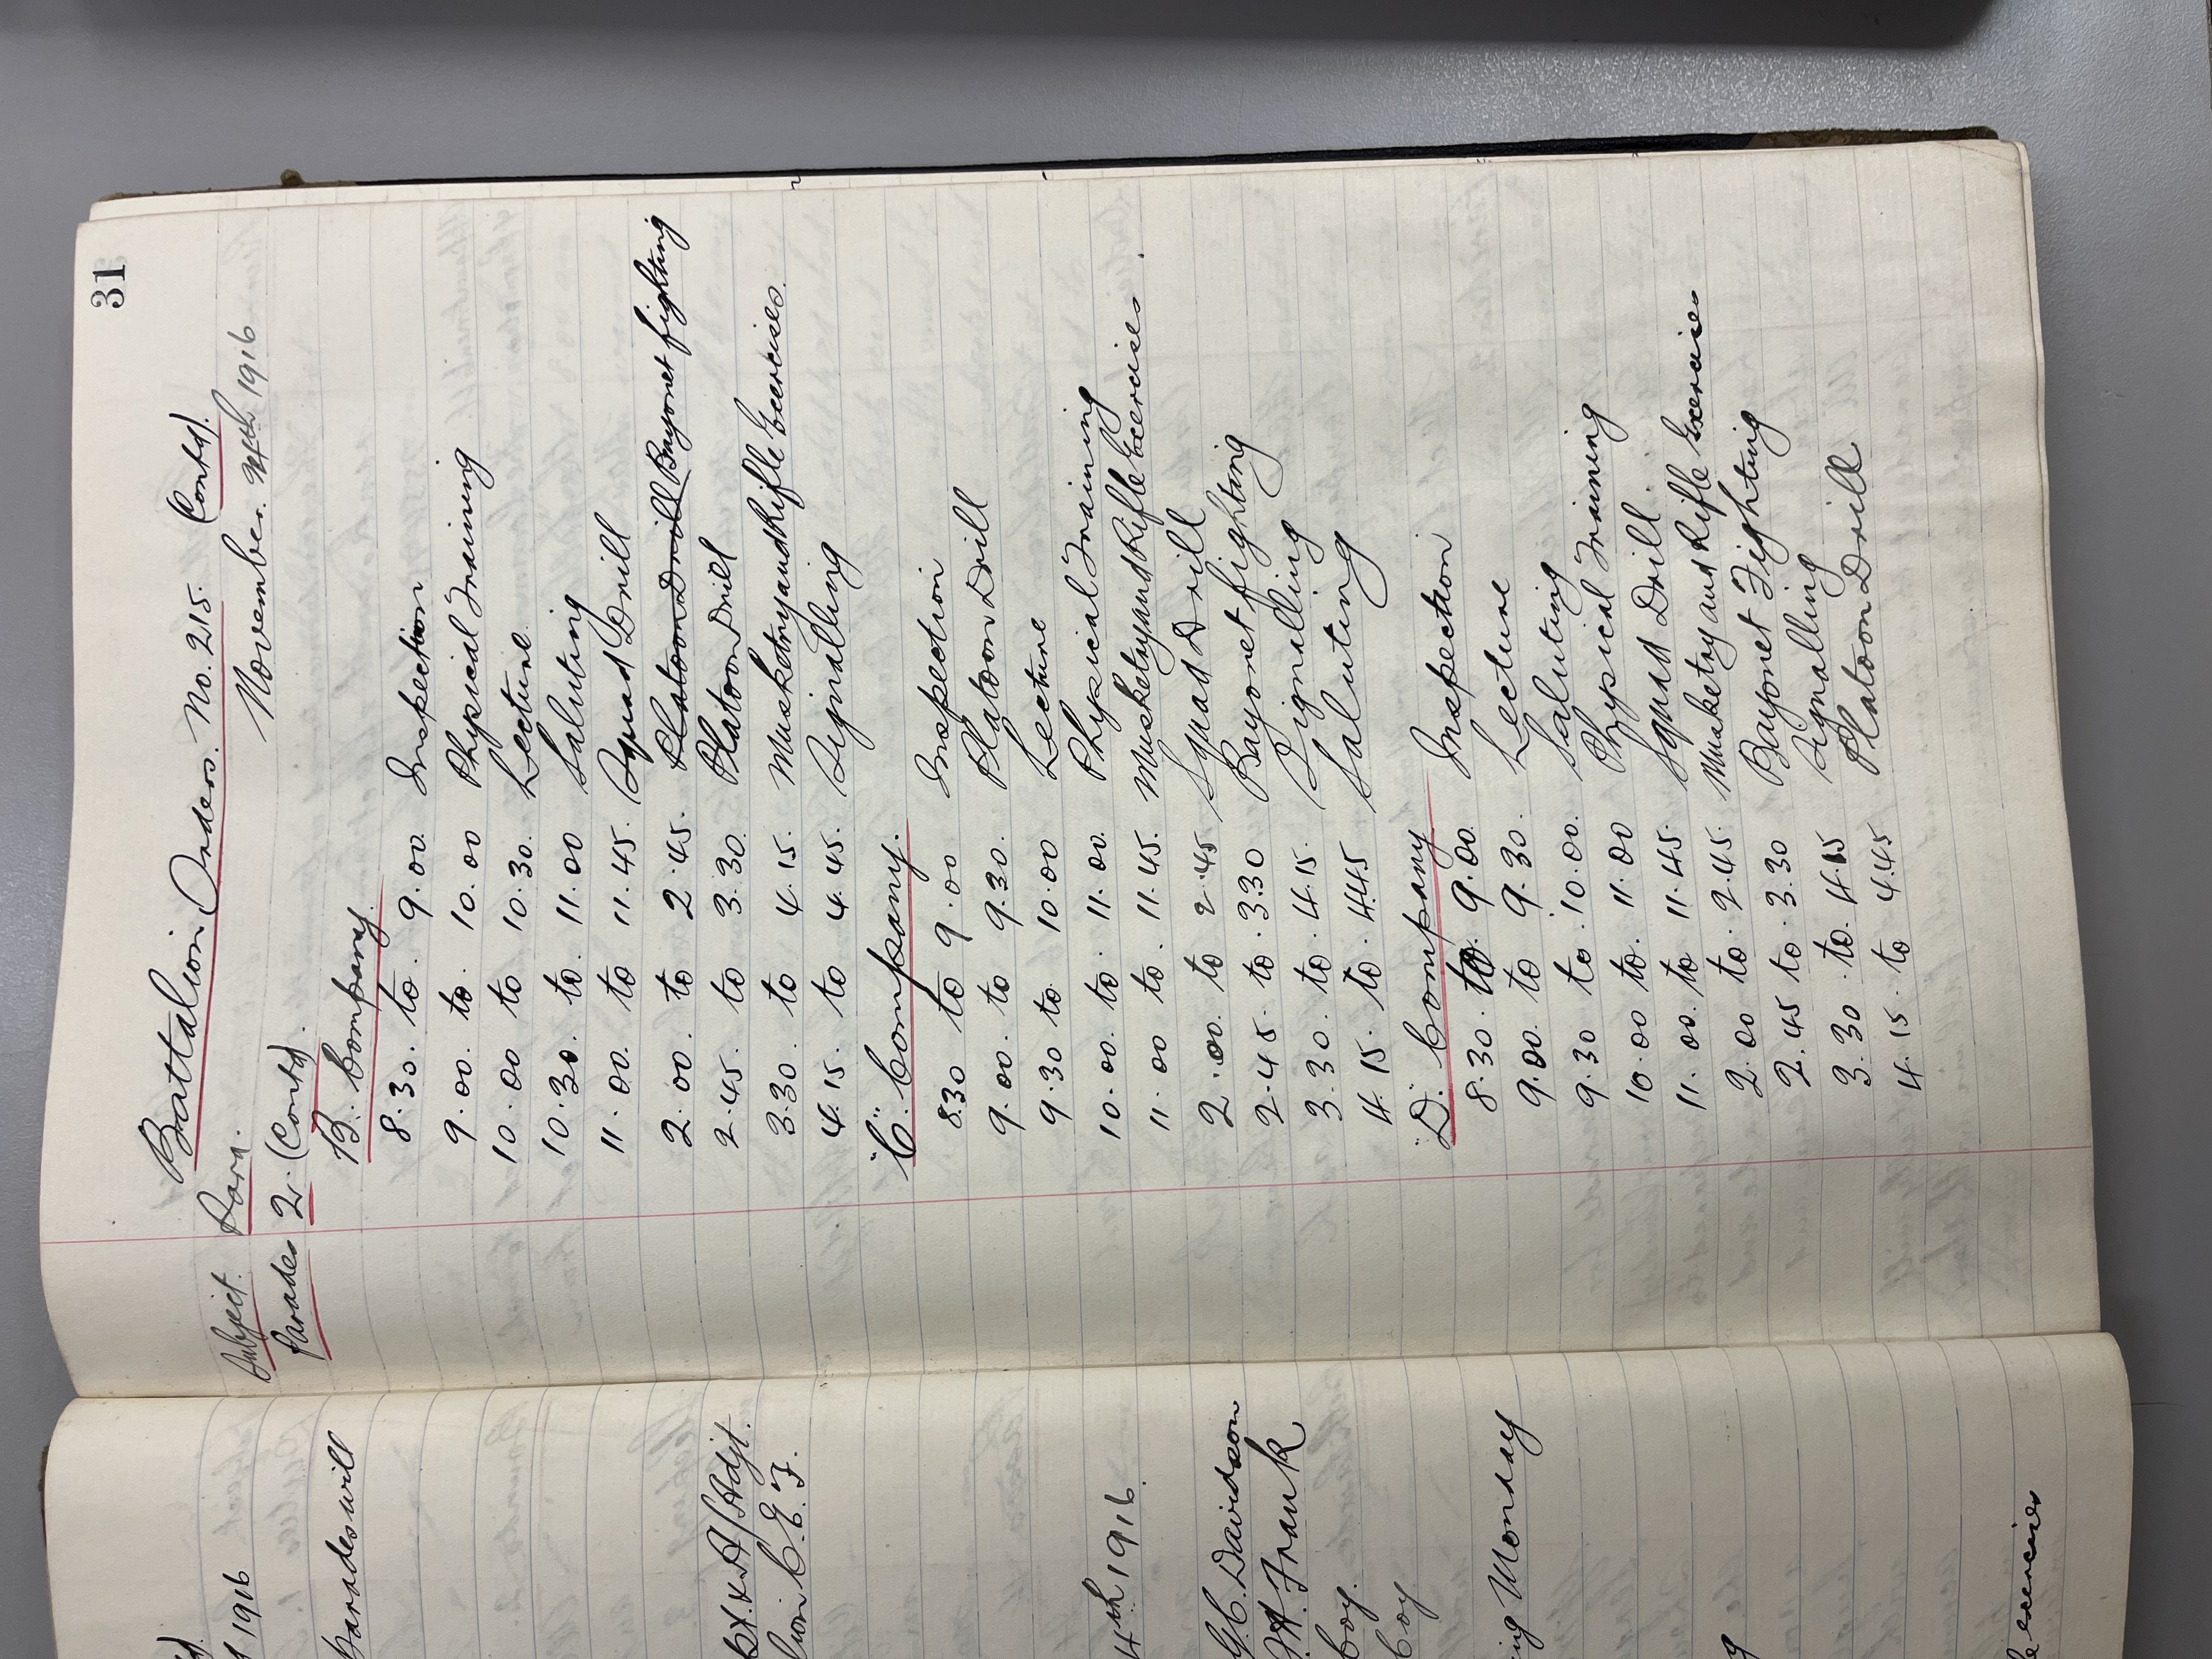 31
Battalion Orders. No. 215. (Contd).
November. 4th 1916
Subject. Para.
Parades 2. (Contd).
B. Company.
8.30. to. 9.00. Inspection
9.00. to. 10.00 Physical Training
10.00 to 10.30. Lecture.
10.30. to. 11.00 Saluting
11.00. to 11.45. Squad Drill
2.00. to 2.45. Platoon Drill Bayonet fighting
2.45. to 3.30. Platoon Drill
3.30. to 4.15. Musketry and Rifle Exercises.
4.15. to 4.45. Signalling
"C". Company.
8.30 to 9.00 Inspection
9.00. to 9.30. Platoon Drill
9.30 to. 10.00 Lecture
10.00. to. 11.00. Physical Training
11.00 to. 11.45. Musketry and Rifle Exercises.
2.00. to 2.45 Squad Drill
2.45. to. 3.30 Bayonet fighting
3.30. to. 4.15. Signalling
4.15. to. 4.45 Saluting
"D". Company
8.30. to. 9.00. Inspection
9.00 to 9.30. Lecture
9.30 to. 10.00. Saluting
10.00 to. 11.00 Physical Training
11.00. to 11.45. Squad Drill.
2.00 to. 2.45. Musketry and Rifle Exercises
2.45 to. 3.30 Bayonet Fighting
3.30. to. 4.15 Signalling
4.15. to 4.45 Platoon Drill
1916
Parades will
A/Adjt.
C.E.F.
4th 1916.
G.C. Davidson
Frank
Coy.
Coy
Monday
exercises